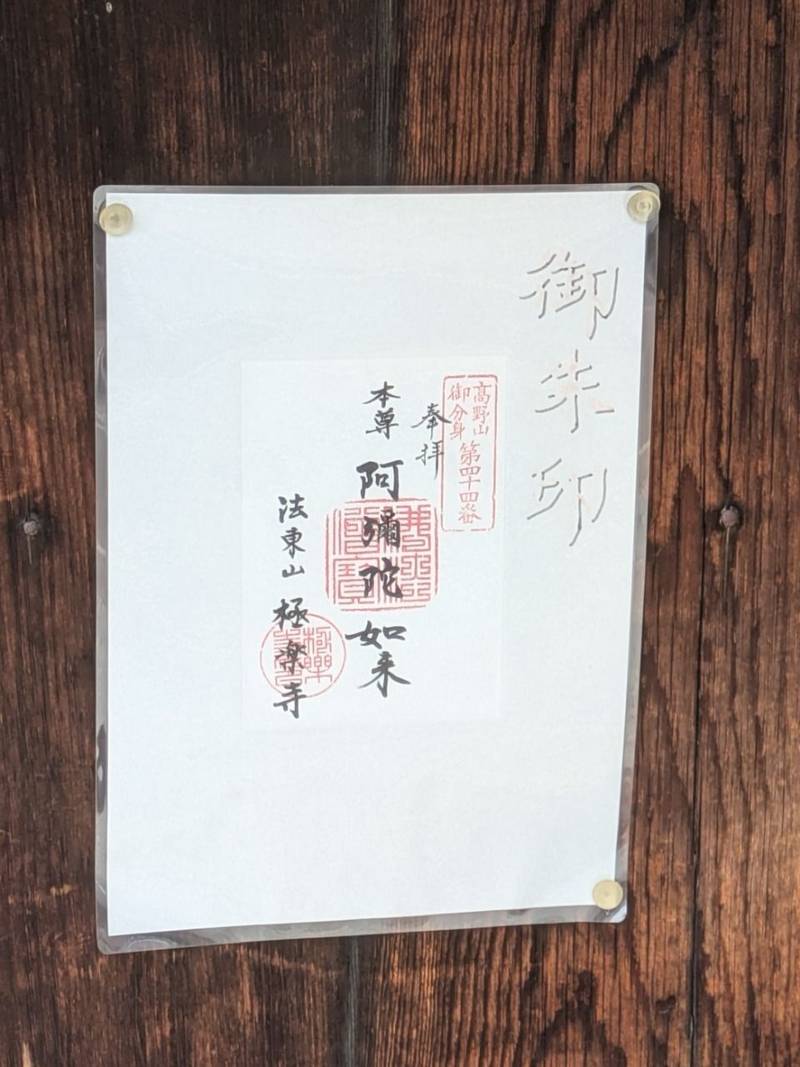 御朱印
高野山
御分身
第四十四番
奉拝
本尊
阿彌陀如来
法東山
極楽寺
極樂